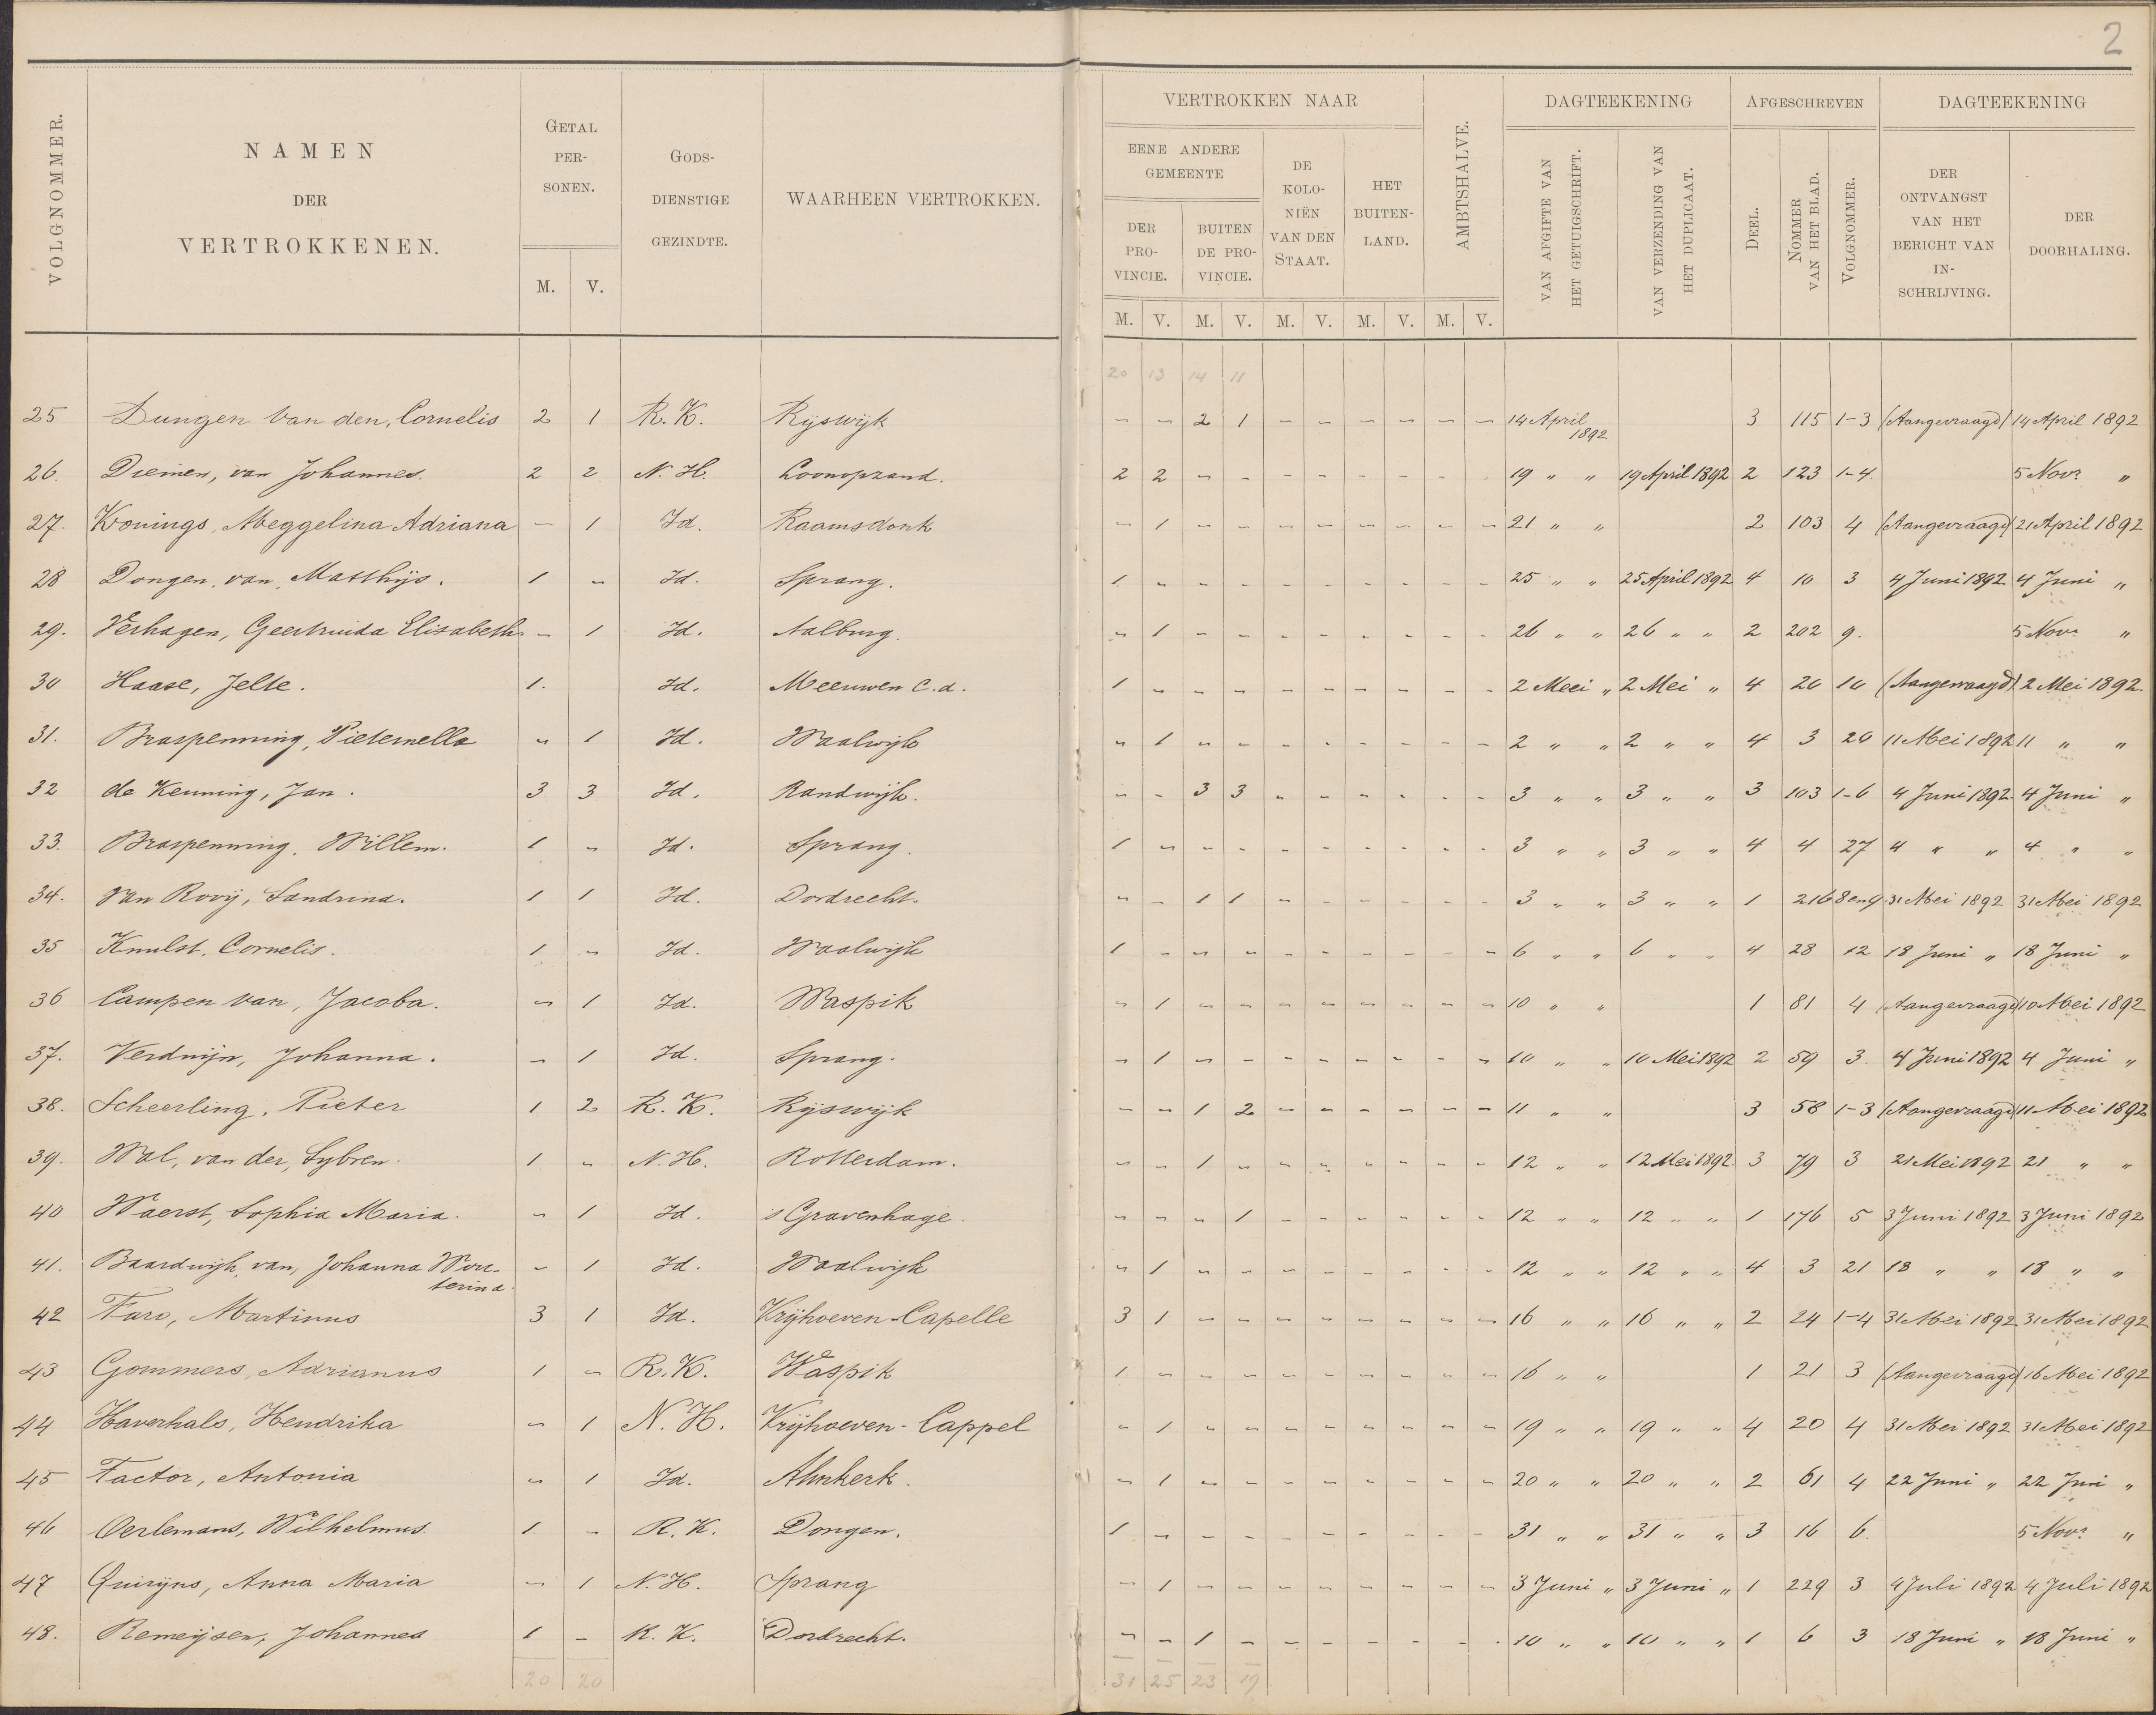 2
VOLGNOMMER.
NAMEN
DER
VERTROKKENEN.
GETAL
PER-
SONEN.
M. V.
GODS-
DIENSTIGE
GEZINDTE.
WAARHEEN VERTROKKEN.
VERTROKKEN NAAR
EENE ANDERE
GEMEENTE
DER
PRO-
VINCIE.
BUITEN
DE PRO-
VINCIE.
DE
KOLO-
NIËN
VAN DEN
STAAT.
HET
BUITEN-
LAND.
AMBTSHALVE.
M. V. M. V. M. V. M. V. M. V.
DAGTEEKENING
VAN AFGIFTE VAN
HET GETUIGSCHRIFT.
VAN VERZENDING VAN
HET DUPLICAAT.
AFGESCHREVEN
DEEL.
NOMMER
VAN HET BLAD.
VOLGNOMMER.
DAGTEEKENING
DER
ONTVANGST
VAN HET
BERICHT VAN
IN-
SCHRIJVING.
DER
DOORHALING.
20 13 14 11
25 Dungen van den, Cornelis 2 1 R.K. Rijswijk - - 2 1 - - - - - - 14 April 1892 3 115 1-3 (Aangevraagd) 14 April 1892
26. Diemen, van Johannes. 2 2 N.H. Loonopzand. 2 2 - - - - - - - 19 " " 19 April 1892 2 123 1-4 5 Nov? "
27. Konings, Meggelina Adriana - 1 Id. Raamsdonk - 1 - - - - - - - - 21 " " 2 103 4 (Aangevraagd) 21 April 1892
28 Dongen, van, Matthijs. 1 - Id. Sprang. 1 - - - - - - - - - 25 " " 25 April 1892 4 10 3 4 Juni 1892 4 Juni "
29. Verhagen, Geertruida Elisabeth - 1 Id. Aalburg. - 1 - - - - - - - - 26 " " 26 " " 2 202 9. 5 Nov? "
30 Haase, Jelte. 1. Id. Meeuwen C.a. 1 - - - - - - - - - 2 Meei " 2 Mei " 4 20 10 (Aangevraagd) 2 Mei 1892.
31. Braspenning, Pieternella - 1 Id. Waalwijk - 1 - - - - - - - - 2 " " 2 " " 4 3 20 11 Mei 1892 11 " "
32 de Keuning, Jan. 3 3 Id. Randwijk. - - 3 3 - - - - - - 3 " " 3 " " 3 103 1-6 4 Juni 1892 4 Juni "
33. Braspenning, Willem. 1 - Id. Sprang. 1 - - - - - - - - - 3 " " 3 " " 4 4 27 4 " " 4 " "
34. Van Rooij, Sandrina. 1 1 Id. Dordrecht. - - 1 1 - - - - - - 3 " " 3 " " 1 216 8 en 9 31 Mei 1892 31 Mei 1892
35 Knulst, Cornelis. 1 - Id. Waalwijk 1 - - - - - - - - - 6 " " 6 " " 4 28 12 18 Juni " 18 Juni "
36 Campen van, Jacoba. - 1 Id. Waspik - 1 - - - - - - - - 10 " " 1 81 4 (Aangevraagd) 10 Mei 1892
37. Verduijn, Johanna. - 1 Id. Sprang. - 1 - - - - - - - - 10 " " 10 Mei 1892 2 59 3. 4 Juni 1892 4 Juni "
38. Scheerling, Pieter 1 2 R.K. Rijswijk - - 1 2 - - - - - - 11 " " 3 58 1-3 (Aangevraagd) 11 Mei 1892
39. Wal, van der, Sybren. 1 - N.H. Rotterdam. - - 1 - - - - - - - 12 " " 12 Mei 1892 3 79 3 21 Mei 1892 21 " "
40 Waerst, Sophia Maria. - 1 Id. 's Gravenhage. - - - 1 - - - - - - 12 " " 12 " " 1 176 5 3 Juni 1892 3 Juni 1892
41. Baardwijk, van, Johanna Wou-
terina. - 1 Id. Waalwijk - 1 - - - - - - - - 12 " " 12 " " 4 3 21 18 " " 18 " "
42 Faro, Martinus 3 1 Id. Vrijhoeven-Capelle 3 1 - - - - - - - - 16 " " 16 " " 2 24 1-4 31 Mei 1892 31 Mei 1892
43 Gommers, Adrianus 1 - R.K. Waspik 1 - - - - - - - - - 16 " " 1 21 3 (Aangevraagd) 16 Mei 1892
44 Haverhals, Hendrika - 1 N.H. Vrijhoeven-Cappel - 1 - - - - - - - - 19 " " 19 " " 4 20 4 31 Mei 1892 31 Mei 1892
45 Factor, Antonia - 1 Id. Almkerk. - 1 - - - - - - - - 20 " " 20 " " 2 61 4 22 Juni " 22 Juni "
46 Oerlemans, Wilhelmus 1 - R.K. Dongen. 1 - - - - - - - - - 31 " " 31 " " 3 16 6 5 Nov? "
47 Quirijns, Anna Maria - 1 N.H. Sprang - 1 - - - - - - - - 3 Juni " 3 Juni " 1 229 3 4 Juli 1892 4 Juli 1892
48. Remeijsen, Johannes 1 - R.K. Dordrecht. - - 1 - - - - - - - 10 " " 10 " " 1 6 3 18 Juni " 18 Juni "
20 20 31 25 23 19